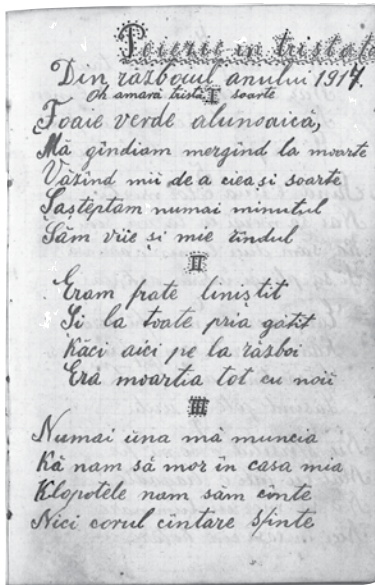 Poiezie in tristate
Din războiul anului 1914.
Oh amară tristă soarte
I
Foaie verde alunoaică,
Mă gîndiam mergînd la moarte
Văzînd mii de a cieași soarte
Șașteptam numai minutul
Săm vie și mie rîndul
II
Eram frate liniștit
Și la toate pria gătit
Kăci aici pe la război
Era moartia tot cu noii
III
Numai una mă muncia
Kă nam să mor în casa mia
Klopotele nam săm cînte
Nici corul cîntare sfinte